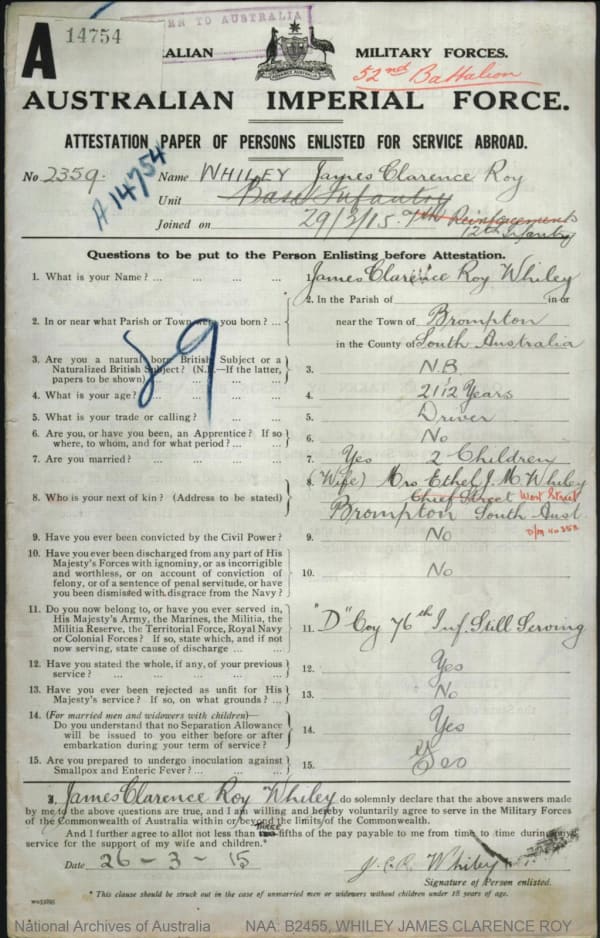 A 14754
RN TO AUSTRALIA
ALIAN MILITARY FORCES.
52nd Battalion
AUSTRALIAN IMPERIAL FORCE.
ATTESTATION PAPER OF PERSONS ENLISTED FOR SERVICE ABROAD.
No. 2359. Name WHILEY James Clarence Roy
A14754
Unit Base Infantry
Joined on 29/3/15. 7th Reinforcements
12th Infantry
Questions to be put to the Person Enlisting before Attestation.
1. What is your Name? ... 1. James Clarence Roy Whiley
2. In or near what Parish or Town were you born? ... 2. In the Parish of in or
near the Town of Brompton
in the County of South Australia
3. Are you a natural born British Subject or a
Naturalized British Subject? (N.B.—If the latter,
papers to be shown) 3. N.B.
4. What is your age? ... 4. 21 1/12 Years
5. What is your trade or calling? ... 5. Driver
6. Are you, or have you been, an Apprentice? If so
where, to whom, and for what period? ... 6. No
7. Are you married? ... 7. Yes 2 Children
8. Who is your next of kin? (Address to be stated) 8. (Wife) Mrs Ethel J. M. Whiley
Chief Street West Street
Brompton South Aust
9. Have you ever been convicted by the Civil Power? 9. No
10. Have you ever been discharged from any part of His
Majesty's Forces with ignominy, or as incorrigible
and worthless, or on account of conviction of
felony, or of a sentence of penal servitude, or have
you been dismissed with disgrace from the Navy? 10. No
11. Do you now belong to, or have you ever served in,
His Majesty's Army, the Marines, the Militia, the
Militia Reserve, the Territorial Force, Royal Navy
or Colonial Forces? If so, state which, and if not
now serving, state cause of discharge ... 11. "D" Coy 76th Inf. Still Serving
12. Have you stated the whole, if any, of your previous
service? ... 12. Yes
13. Have you ever been rejected as unfit for His
Majesty's service? If so, on what grounds? ... 13. No
14. (For married men and widowers with children)—
Do you understand that no Separation Allowance
will be issued to you either before or after
embarkation during your term of service? 14. Yes
15. Are you prepared to undergo inoculation against
Smallpox and Enteric Fever? ... 15. Yes
89
I, James Clarence Roy Whiley do solemnly declare that the above answers made
by me to the above questions are true, and I am willing and hereby voluntarily agree to serve in the Military Forces
of the Commonwealth of Australia within or beyond the limits of the Commonwealth.
And I further agree to allot not less than THREE fifths of the pay payable to me from time to time during my
service for the support of my wife and children.*
Date 26-3-15 J. C. R. Whiley
Signature of Person enlisted.
* This clause should be struck out in the case of unmarried men or widowers without children under 18 years of age.
National Archives of Australia NAA: B2455, WHILEY JAMES CLARENCE ROY